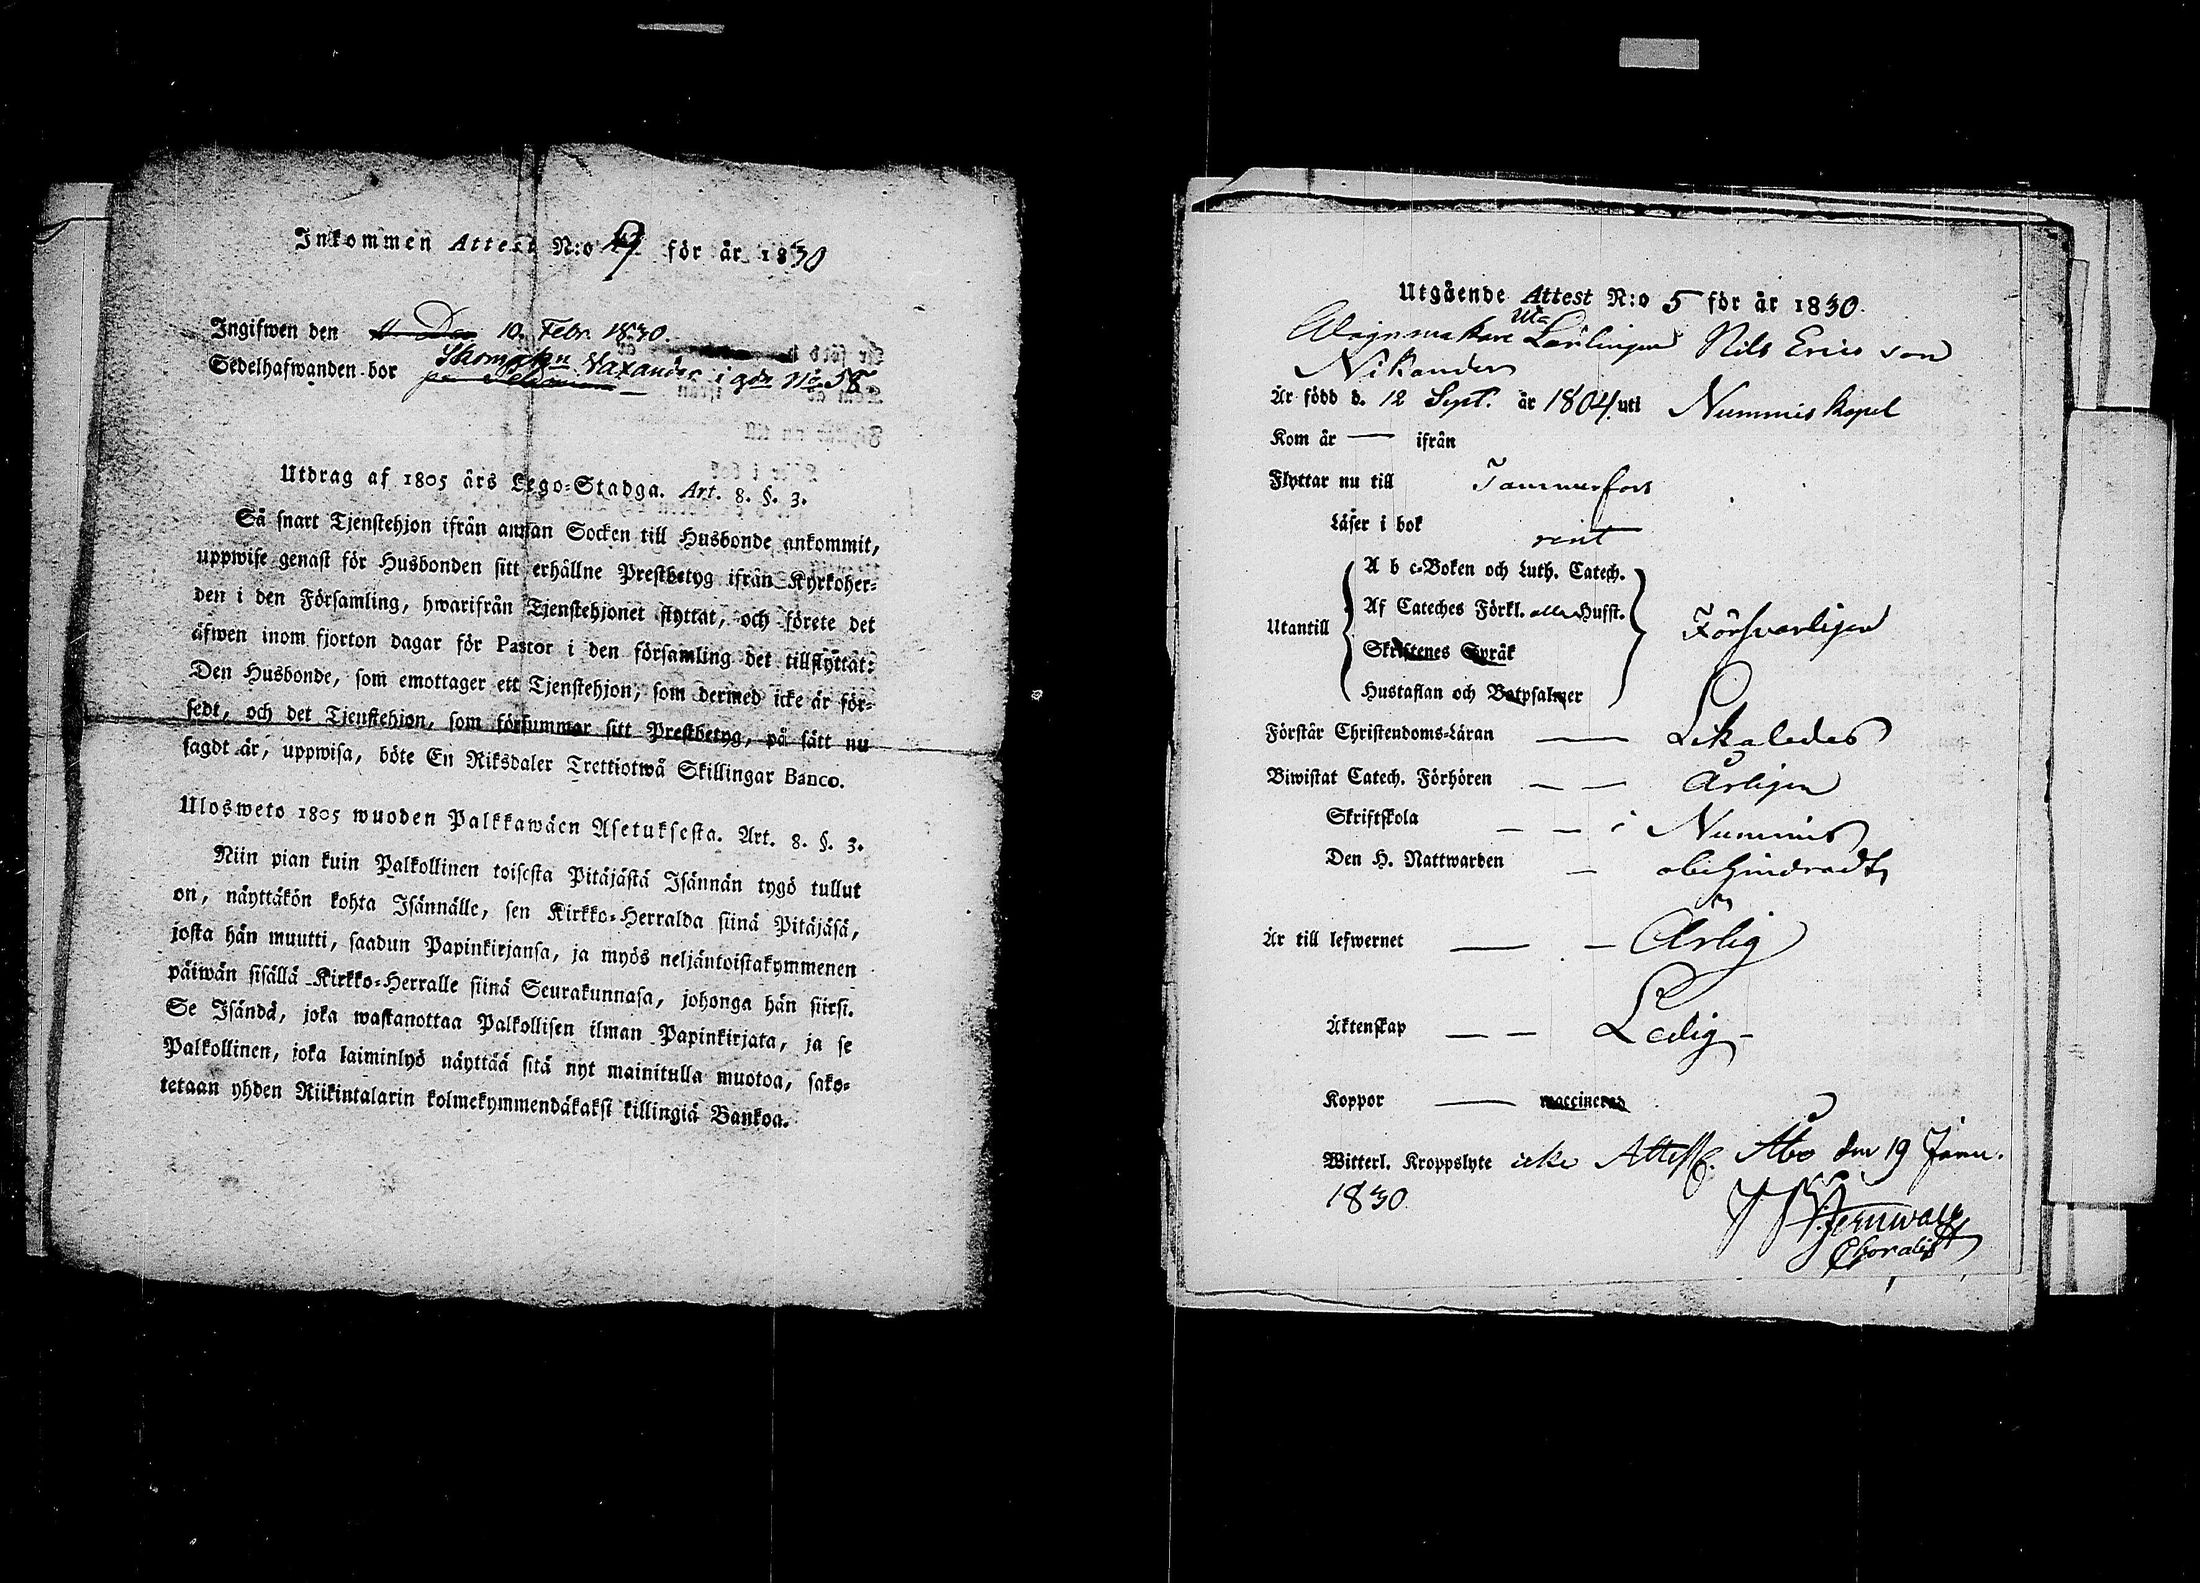 Inkommen Attest N:o 9 för år 1830
Ingifwen den 10. Febr. 1830.
Sedelhafwanden bor i gdn No 58
Utdrag af 1805 års Lego-Stadga. Art. 8. §. 3.
Så snart Tjenstehjon ifrån annan Socken till Husbonde ankommit,
uppwise genast för Husbonden sitt erhållne Prestbetyg ifrån Kyrkoher-
den i den Församling, hwarifrån Tjenstehjonet flyttat, och förete det
äfwen inom fjorton dagar för Pastor i den församling det tillflyttat:
Den Husbonde, som emottager ett Tjenstehjon, som dermed icke är för-
sedt, och det Tjenstehjon, som försummar sitt Prestbetyg, på sätt nu
sagdt är, uppwisa, böte En Riksdaler Trettiotwå Skillingar Banco.
Ulosweto 1805 wuoden Palkkawäen Asetuksesta. Art. 8. §. 3.
Niin pian kuin Palkollinen toisesta Pitäjästä Isännän tygö tullut
on, näyttäkön kohta Isännälle, sen Kirkko-Herralda siinä Pitäjäsä,
josta hän muutti, saadun Papinkirjansa, ja myös neljäntoistakymmenen
päiwän sisällä Kirkko-Herralle siinä Seurakunnasa, johonga hän siirsi.
Se Isändä, joka wastanottaa Palkollisen ilman Papinkirjata, ja se
Palkollinen, joka laiminlyö näyttää sitä nyt mainitulla muotoa, sako-
tetaan yhden Riikintalarin kolmekymmendäkaksi killingiä Bankoa.
Utgående Attest N:o 5 för år 1830.
Wagnmakare Lärlingen Nils Ericsson
Nikander
Är född d. 12 Sept. år 1804. uti Nummis kapel
Kom år — ifrån
Flyttar nu till Tammerfors
Läser i bok rent
A b c-Boken och Luth. Catech.
Af Cateches Förkl. alla Hufst.
Utantill Försvarligen
Skriftenes Språk
Hustaflan och Botpsalmer
Förstår Christendoms-Läran — Likaledes
Biwistat Catech. Förhören — — Årligen
Skriftskola — — i Nummis
Den H. Nattwarden — obehindradt
Är till lefwernet — — Ärlig
Äktenskap — — Ledig
Koppor — vaccinerad
Witterl. Kroppslyte icke Attest. Åbo den 19 Janu.
1830.